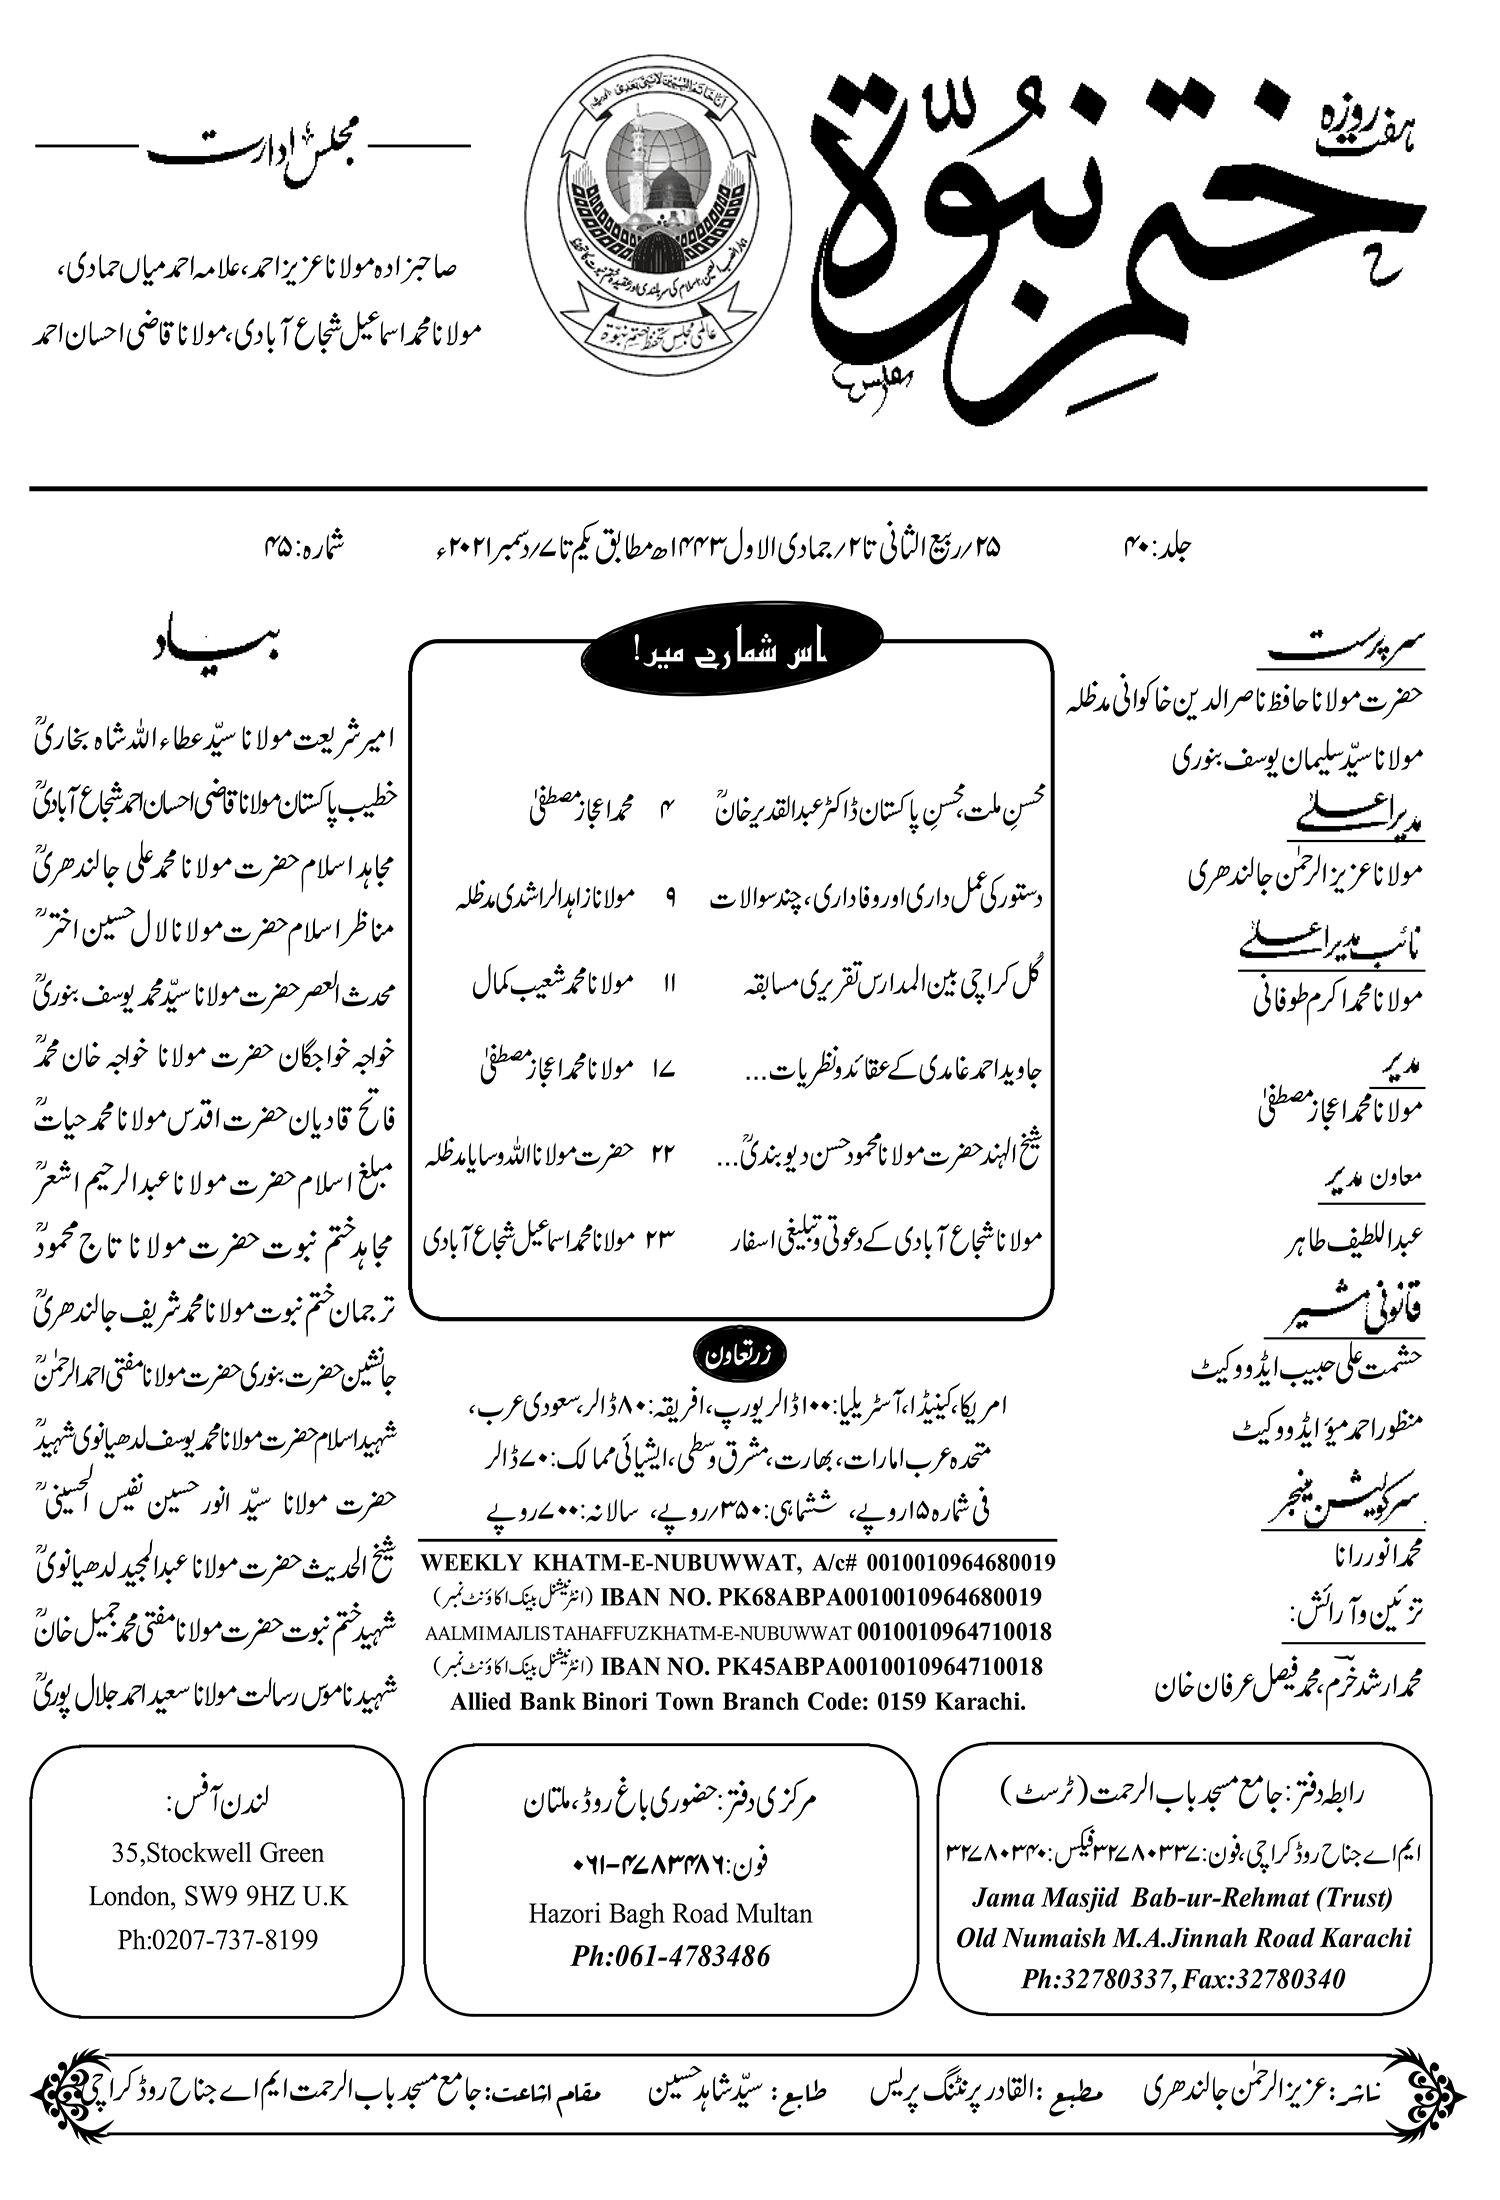 ہفت روزہ
ختم نبوۃ
مجلس ادارت
صاحبزادہ مولانا عزیز احمد، علامہ احمد میاں حمادی،
مولانا محمد اسماعیل شجاع آبادی، مولانا قاضی احسان احمد
عالمی مجلس تحفظ ختم نبوۃ
جلد: ۴۰
۲۵/ربیع الثانی تا ۲/جمادی الاول ۱۴۴۳ھ مطابق یکم تا ۷/دسمبر ۲۰۲۱ء
شمارہ: ۴۵
سرپرست
حضرت مولانا حافظ ناصر الدین خاکوانی مدظلہ
مولانا سیّد سلیمان یوسف بنوری
مدیر اعلےٰ
مولانا عزیز الرحمٰن جالندھری
نائب مدیر اعلےٰ
مولانا محمد اکرم طوفانی
مدیر
مولانا محمد اعجاز مصطفیٰ
معاون مدیر
عبداللطیف طاہر
قانونی مشیر
حشمت علی حبیب ایڈووکیٹ
منظور احمد میؤ ایڈووکیٹ
سرکولیشن مینجر
محمد انور رانا
تزئین و آرائش:
محمد ارشد خرم، محمد فیصل عرفان خان
اس شمارے میں!
محسنِ ملت، محسنِ پاکستان ڈاکٹر عبدالقدیر خانؒ ۴ محمد اعجاز مصطفیٰ
دستور کی عمل داری اور وفاداری، چند سوالات ۹ مولانا زاہد الراشدی مدظلہ
کُل کراچی بین المدارس تقریری مسابقہ ۱۱ مولانا محمد شعیب کمال
جاوید احمد غامدی کے عقائد و نظریات... ۱۷ مولانا محمد اعجاز مصطفیٰ
شیخ الہند حضرت مولانا محمود حسن دیوبندیؒ... ۲۲ حضرت مولانا اللہ وسایا مدظلہ
مولانا شجاع آبادی کے دعوتی و تبلیغی اسفار ۲۳ مولانا محمد اسماعیل شجاع آبادی
زرتعاون
امریکا، کینیڈا، آسٹریلیا: ۱۰۰ ڈالر یورپ، افریقہ: ۸۰ ڈالر، سعودی عرب،
متحدہ عرب امارات، بھارت، مشرق وسطی، ایشیائی ممالک: ۷۰ ڈالر
فی شمارہ ۱۵ روپے، ششماہی: ۳۵۰/روپے، سالانہ: ۷۰۰ روپے
WEEKLY KHATM-E-NUBUWWAT, A/c# 0010010964680019
IBAN NO. PK68ABPA0010010964680019 (انٹرنیشنل بینک اکاؤنٹ نمبر)
AALMI MAJLIS TAHAFFUZ KHATM-E-NUBUWWAT 0010010964710018
IBAN NO. PK45ABPA0010010964710018 (انٹرنیشنل بینک اکاؤنٹ نمبر)
Allied Bank Binori Town Branch Code: 0159 Karachi.
بیاد
امیر شریعت مولانا سیّد عطاء اللہ شاہ بخاریؒ
خطیب پاکستان مولانا قاضی احسان احمد شجاع آبادیؒ
مجاہد اسلام حضرت مولانا محمد علی جالندھریؒ
مناظر اسلام حضرت مولانا لال حسین اخترؒ
محدث العصر حضرت مولانا سیّد محمد یوسف بنوریؒ
خواجہ خواجگان حضرت مولانا خواجہ خان محمدؒ
فاتح قادیان حضرت اقدس مولانا محمد حیاتؒ
مبلغ اسلام حضرت مولانا عبدالرحیم اشعرؒ
مجاہد ختم نبوت حضرت مولانا تاج محمودؒ
ترجمان ختم نبوت مولانا محمد شریف جالندھریؒ
جانشین حضرت بنوری حضرت مولانا مفتی احمد الرحمٰنؒ
شہید اسلام حضرت مولانا محمد یوسف لدھیانوی شہیدؒ
حضرت مولانا سیّد انور حسین نفیس الحسینیؒ
شیخ الحدیث حضرت مولانا عبدالمجید لدھیانویؒ
شہید ختم نبوت حضرت مولانا مفتی محمد جمیل خانؒ
شہید ناموس رسالت مولانا سعید احمد جلال پوریؒ
رابطہ دفتر: جامع مسجد باب الرحمت (ٹرسٹ)
ایم اے جناح روڈ کراچی، فون: ۳۲۷۸۰۳۳۷ فیکس: ۳۲۷۸۰۳۴۰
Jama Masjid Bab-ur-Rehmat (Trust)
Old Numaish M.A.Jinnah Road Karachi
Ph:32780337, Fax:32780340
مرکزی دفتر: حضوری باغ روڈ، ملتان
فون: ۰۶۱-۴۷۸۳۴۸۶
Hazori Bagh Road Multan
Ph:061-4783486
لندن آفس:
35,Stockwell Green
London, SW9 9HZ U.K
Ph:0207-737-8199
ناشر: عزیز الرحمٰن جالندھری مطبع: القادر پرنٹنگ پریس طابع: سیّد شاہد حسین مقام اشاعت: جامع مسجد باب الرحمت ایم اے جناح روڈ کراچی